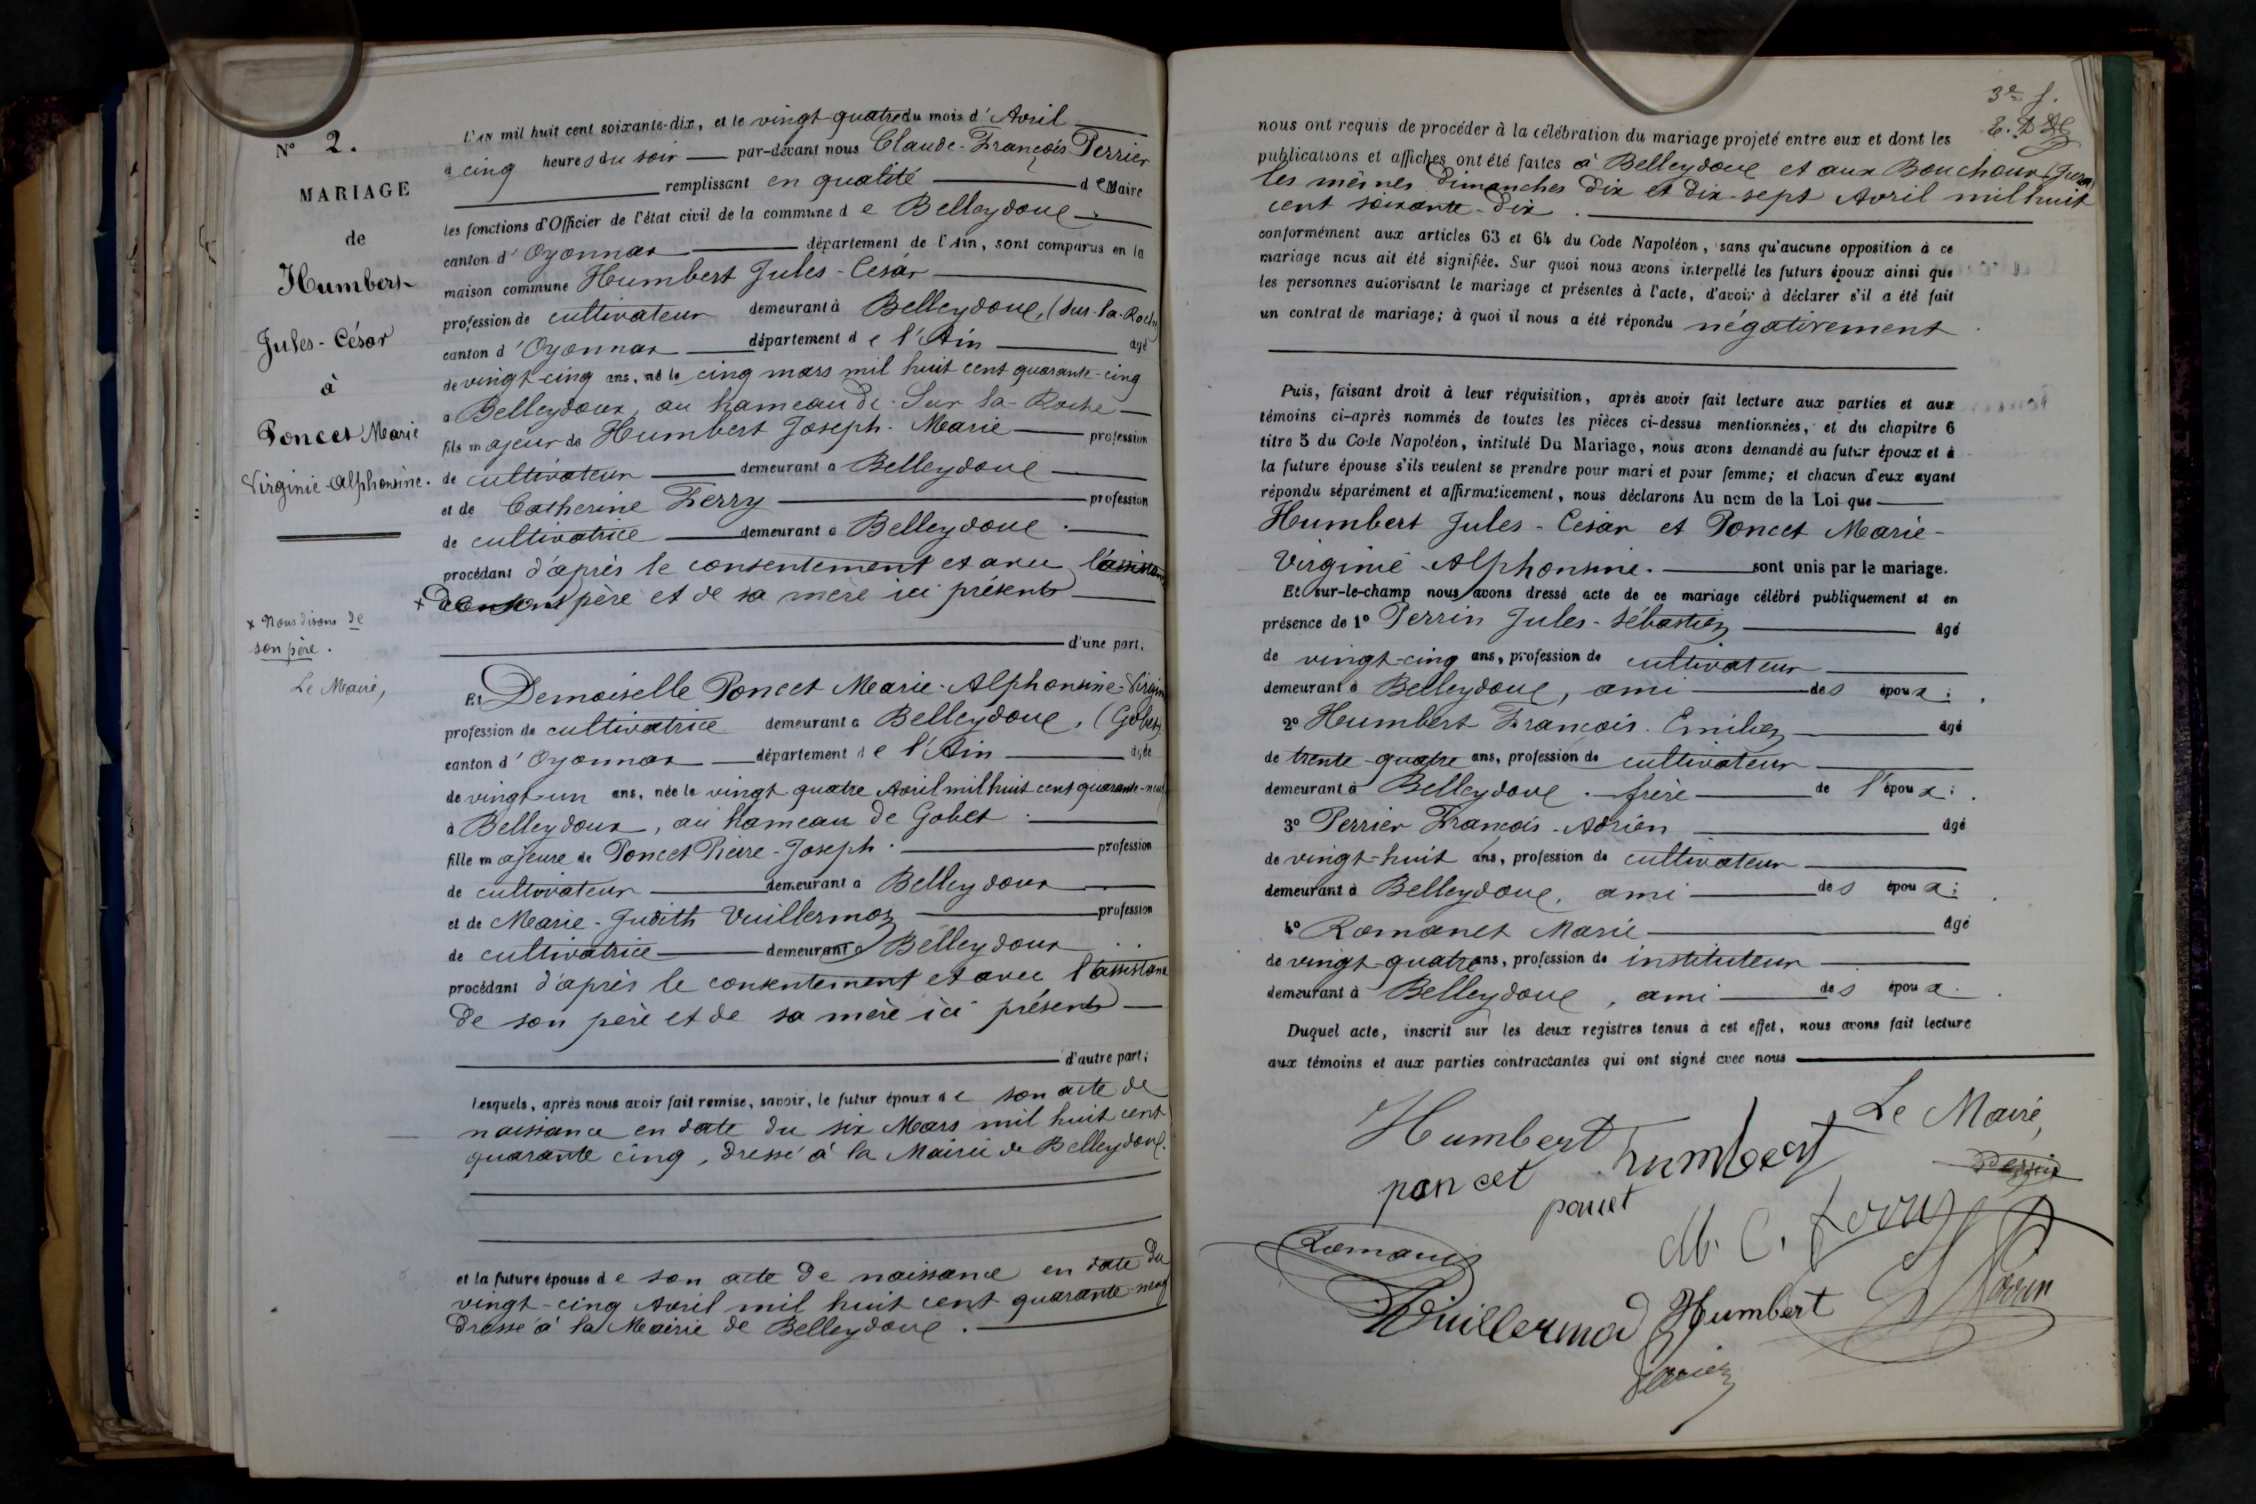 N° 2.
MARIAGE
de
Humbert
Jules-César
à
Poncet Marie
Virginie-Alphonsine.
x Nous disons de
son père.
Le Maire,
L'AN mil huit cent soixante-dix, et le vingt-quatre du mois d'Avril
à cinq heures du soir par-devant nous Claude-François Perrier
remplissant en qualité de Maire
les fonctions d'Officier de l'état civil de la commune de Belleydoux
canton d'Oyonnax département de l'Ain, sont comparus en la
maison commune Humbert Jules-César
profession de cultivateur demeurant à Belleydoux, (Sur-la-Roche)
canton d'Oyonnax département de l'Ain âgé
de vingt-cinq ans, né le cinq mars mil huit cent quarante-cinq
à Belleydoux, au hameau de Sur-la-Roche
fils majeur de Humbert Joseph-Marie profession
de cultivateur demeurant à Belleydoux
et de Catherine Ferry profession
de cultivatrice demeurant à Belleydoux.
procédant d'après le consentement et avec l'assistance
x père et de sa mère ici présents
d'une part.
Et Demoiselle Poncet Marie-Alphonsine-Virginie
profession de cultivatrice demeurant à Belleydoux, (Gobet)
canton d'Oyonnax département de l'Ain âgée
de vingt-un ans, née le vingt quatre Avril mil huit cent quarante-neuf
à Belleydoux, au hameau de Gobet.
fille majeure de Poncet Pierre-Joseph. profession
de cultivateur demeurant à Belleydoux
et de Marie-Judith Vuillermoz profession
de cultivatrice demeurant à Belleydoux
procédant d'après le consentement et avec l'assistance
de son père et de sa mère ici présents
d'autre part;
Lesquels, après nous avoir fait remise, savoir, le futur époux de son acte de
naissance en date du six Mars mil huit cent
quarante cinq, dressé à la Mairie de Belleydoux.
et la future épouse de son acte de naissance en date du
vingt-cinq Avril mil huit cent quarante-neuf
dressé à la Mairie de Belleydoux.
3e f.
nous ont requis de procéder à la célébration du mariage projeté entre eux et dont les
publications et affiches ont été faites à Belleydoux et aux Bouchoux (Jura)
les mêmes dimanches dix et dix-sept Avril mil huit
cent soixante-dix.
conformément aux articles 63 et 64 du Code Napoléon, sans qu'aucune opposition à ce
mariage nous ait été signifiée. Sur quoi nous avons interpellé les futurs époux ainsi que
les personnes autorisant le mariage et présentes à l'acte, d'avoir à déclarer s'il a été fait
un contrat de mariage; à quoi il nous a été répondu négativement
Puis, faisant droit à leur réquisition, après avoir fait lecture aux parties et aux
témoins ci-après nommés de toutes les pièces ci-dessus mentionnées, et du chapitre 6
titre 5 du Code Napoléon, intitulé Du Mariage, nous avons demandé au futur époux et à
la future épouse s'ils veulent se prendre pour mari et pour femme; et chacun d'eux ayant
répondu séparément et affirmativement, nous déclarons Au nom de la Loi que
Humbert Jules-César et Poncet Marie-
Virginie-Alphonsine. sont unis par le mariage.
Et sur-le-champ nous avons dressé acte de ce mariage célébré publiquement et en
présence de 1° Perrin Jules-Sébastien âgé
de vingt-cinq ans, profession de cultivateur
demeurant à Belleydoux, ami des époux;
2° Humbert François-Emilien âgé
de trente-quatre ans, profession de cultivateur
demeurant à Belleydoux. frère de l'époux;
3° Perrier François-Adrien âgé
de vingt-huit ans, profession de cultivateur
demeurant à Belleydoux, ami des époux;
4° Romanet Marie âgé
de vingt-quatre ans, profession de instituteur
demeurant à Belleydoux, ami des époux.
Duquel acte, inscrit sur les deux registres tenus à cet effet, nous avons fait lecture
aux témoins et aux parties contractantes qui ont signé avec nous
Humbert humbert Le Maire,
poncet poncet Perrier
M. C. ferry
Romanet
Vuillermod Humbert J Perrin
Perrier